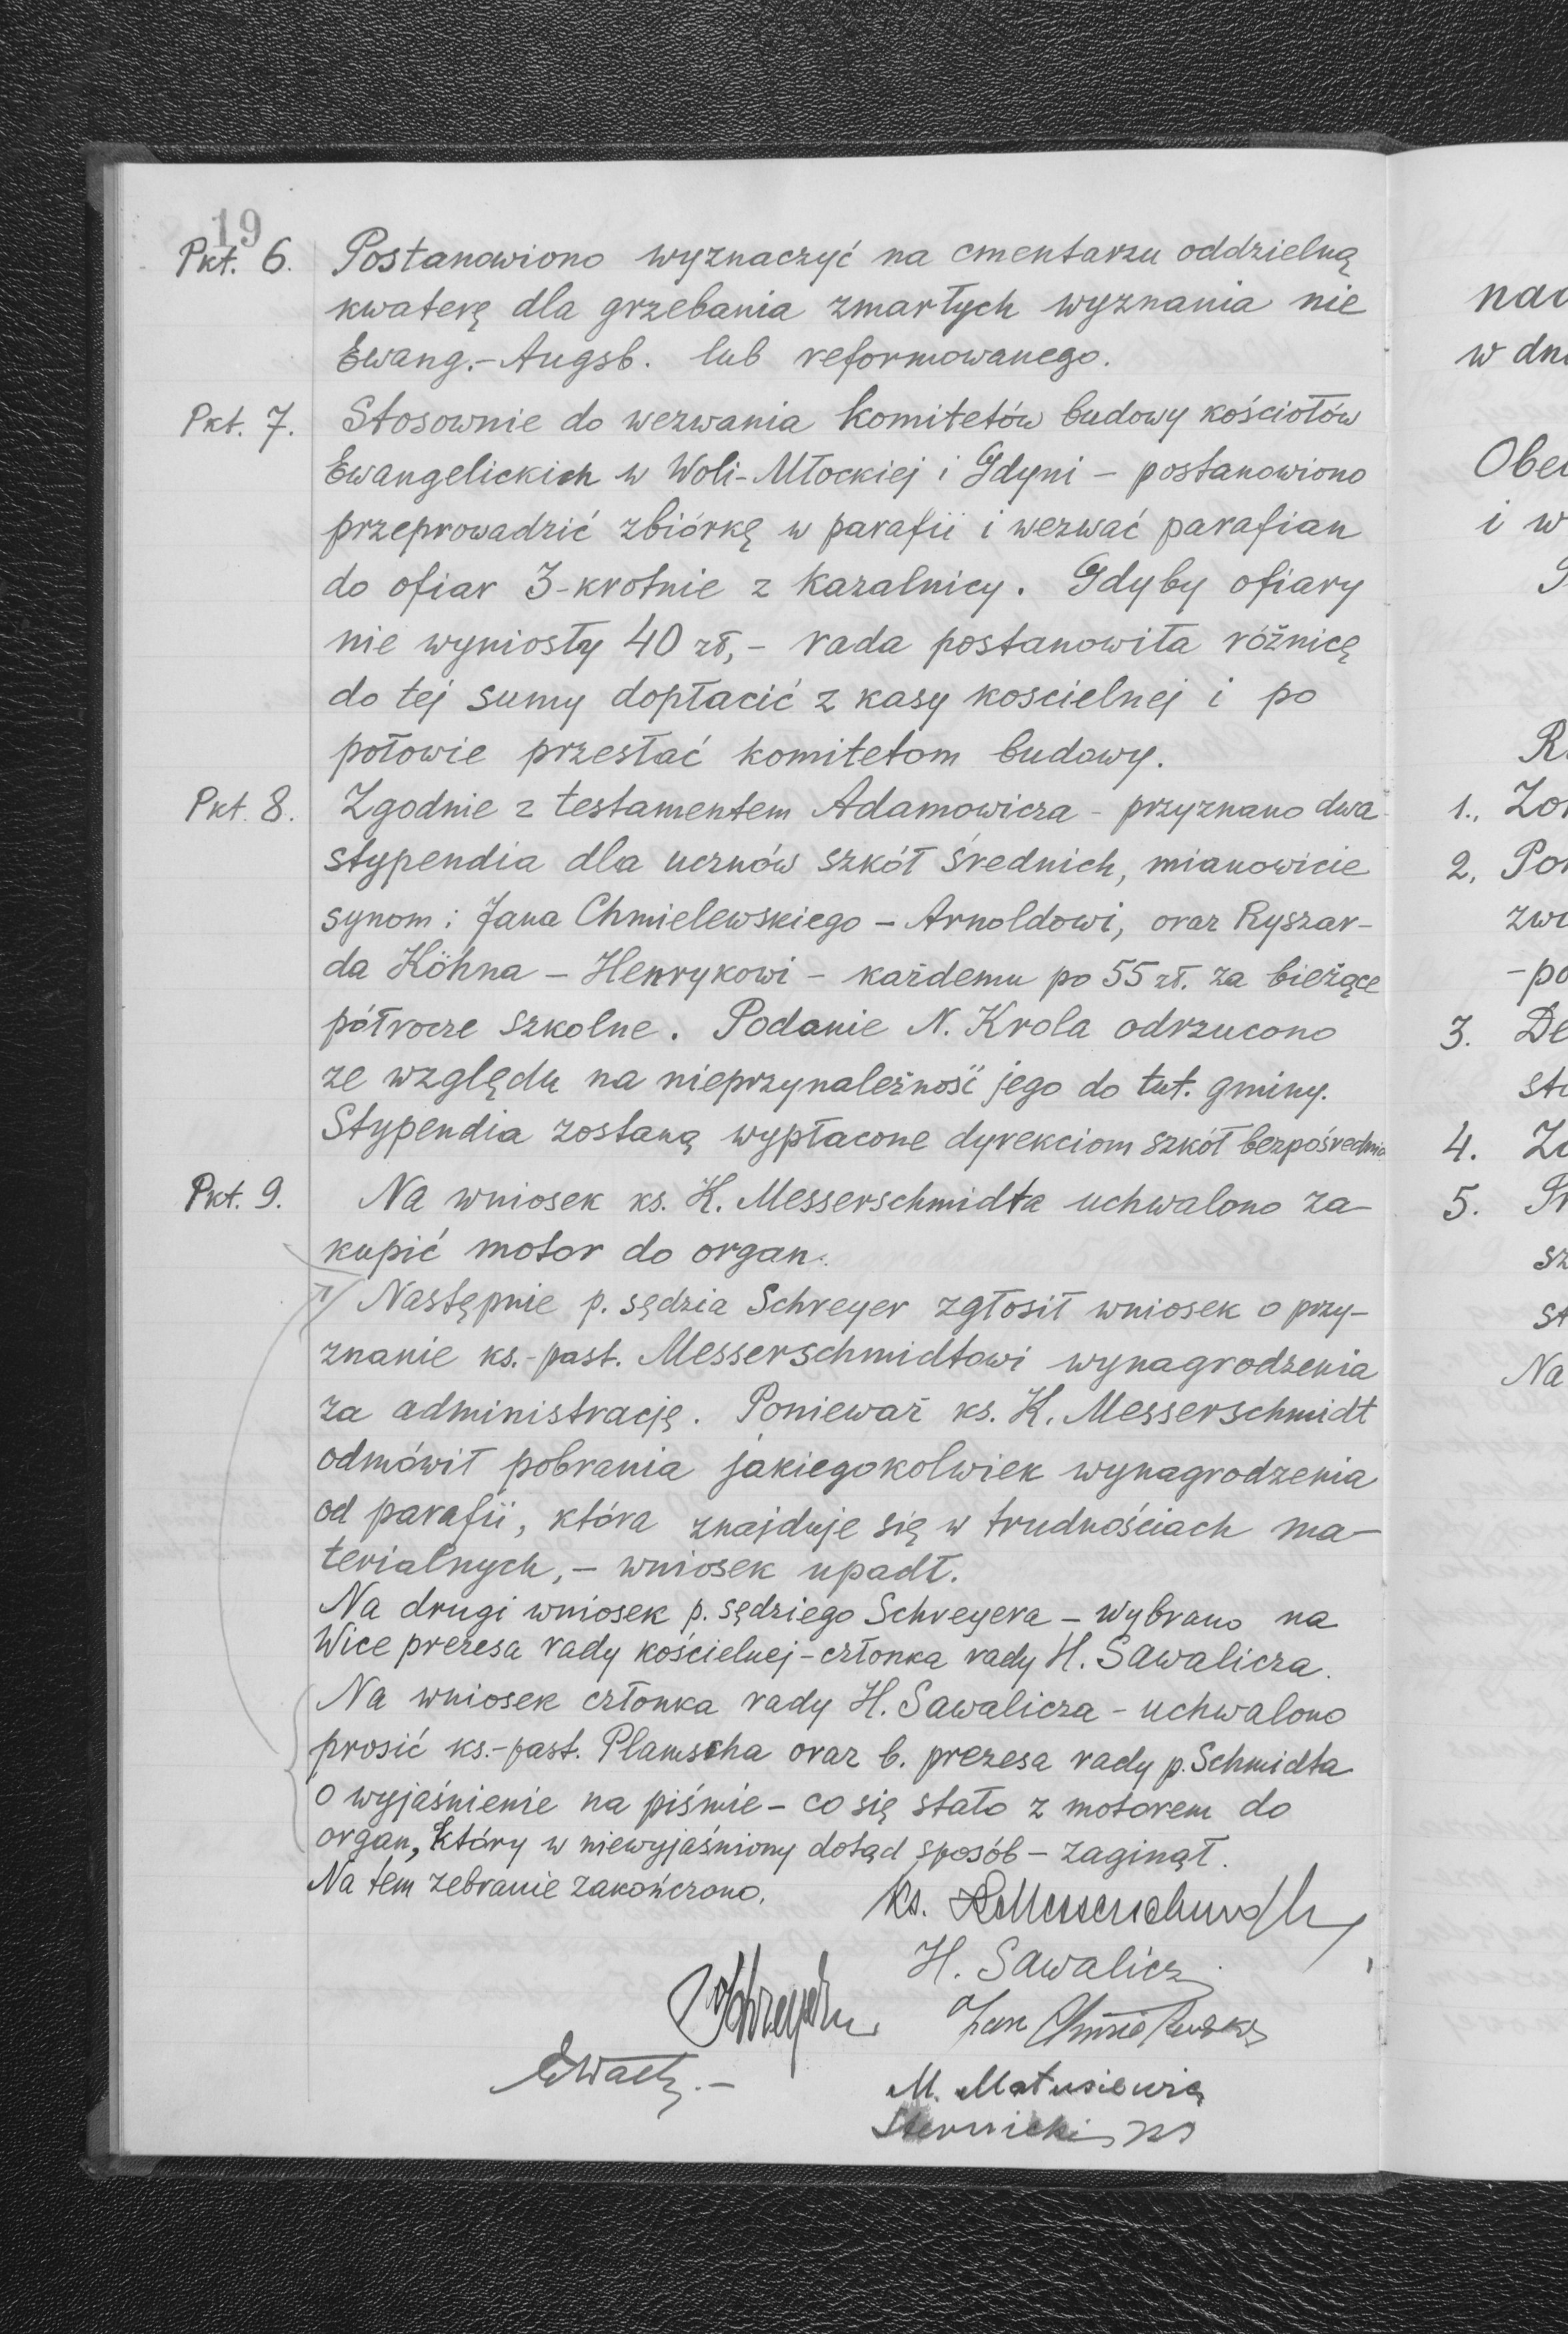 19
Pkt. 6. Postanowiono wyznaczyć na cmentarzu oddzielną
kwaterę dla grzebania zmarłych wyznania nie
Ewang.-Augsb. lub reformowanego.
Pkt. 7. Stosownie do wezwania komitetów budowy kościołów
Ewangelickich w Woli-Młockiej i Gdyni – postanowiono
przeprowadzić zbiórkę w parafii i wezwać parafian
do ofiar 3-krotnie z kazalnicy. Gdyby ofiary
nie wyniosły 40 zł,- rada postanowiła różnicę
do tej sumy dopłacić z kasy koscielnej i po
połowie przesłać komitetom budowy.
Pkt. 8. Zgodnie z testamentem Adamowicza – przyznano dwa
stypendia dla uczniów szkół średnich, mianowicie
synom: Jana Chmielewskiego – Arnoldowi, oraz Ryszar-
da Köhna – Henrykowi – każdemu po 55 zł. za bieżące
półrocze szkolne. Podanie N. Krola odrzucono
ze względu na nieprzynależność jego do tut. gminy.
Stypendia zostaną wypłacone dyrekciom szkół bezpośrednio
Pkt. 9. Na wniosek ks. K. Messerschmidta uchwalono za-
kupić motor do organ.
Następnie p. sędzia Schreyer zgłosił wniosek o przy-
znanie ks.-past. Messerschmidtowi wynagrodzenia
za administrację. Ponieważ ks. K. Messerschmidt
odmówił pobrania jakiegokolwiek wynagrodzenia
od parafii, która znajduje się w trudnościach ma-
terialnych,- wniosek upadł.
Na drugi wniosek p. sędziego Schreyera – wybrano na
Wice prezesa rady kościelnej – członka rady H. Sawalicza.
Na wniosek członka rady H. Sawalicza – uchwalono
prosić ks.-past. Plamscha oraz b. prezesa rady p. Schmidta
o wyjaśnienie na piśmie – co się stało z motorem do
organ, który w niewyjaśniony dotąd sposób – zaginął.
Na tem zebranie zakończono.
Ks. K. Messerschmidt
H. Sawalicz
Jan Chmielewski
M. Matusiewicz
nac
w dn
Obe
i w
R
1., Zo
2. Po
zw
-po
3. De
st
4. Za
5. Pr
sz
st
Na